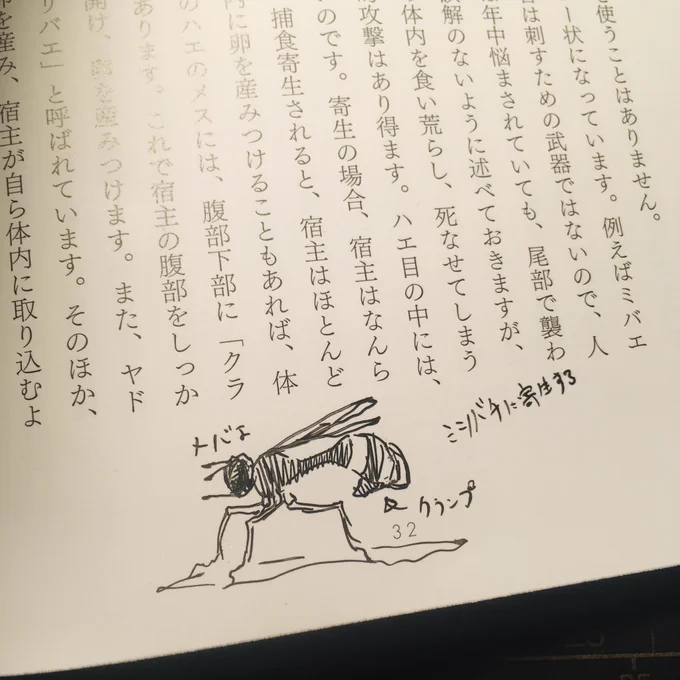 使うことはありません。
ー状になっています。例えばミバエ
は刺すための武器ではないので、人
年中悩まされていても、尾部で襲わ
誤解のないように述べておきますが、
体内を食い荒らし、死なせてしまう
攻撃はあり得ます。ハエ目の中には、
のです。寄生の場合、宿主はなんら
捕食寄生されると、宿主はほとんど
内に卵を産みつけることもあれば、体
のハエのメスには、腹部下部に「クラ
あります。これで宿主の腹部をしっか
開け、卵を産みつけます。また、ヤド
リバエ」と呼ばれています。そのほか、
を産み、宿主が自ら体内に取り込むよ
メバエ
ミツバチに寄生する
クランプ
32